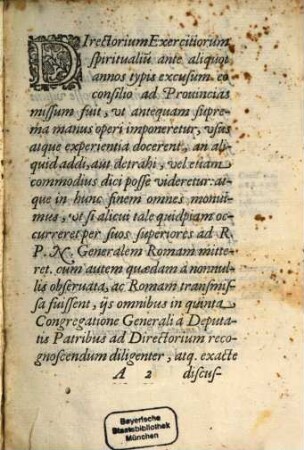 DIrectorium Exercitiorum
spiritualiũ ante aliquot
annos typis excusum eo
consilio ad Prouincias
missum fuit, vt antequam supre-
ma manus operi imponeretur, vsus
atque experientia docerent, an ali-
quid addi, aut detrahi, vel etiam
commodius dici posse videretur: at-
que in hunc finem omnes monui-
mus, vt si alicui tale quidpiam oc-
curreret per suos superiores ad R.
P. N. Generalem Romam mitte-
ret. cum autem quædam à nonnul-
lis obseruata, ac Romam transmis-
sa fuissent, ijs omnibus in quinta
Congregatione Generali à Deputa-
tis Patribus ad Directorium reco-
gnoscendum diligenter, atq. exacte
A 2 discus-
Bayerische
Staatsbibliothek
München